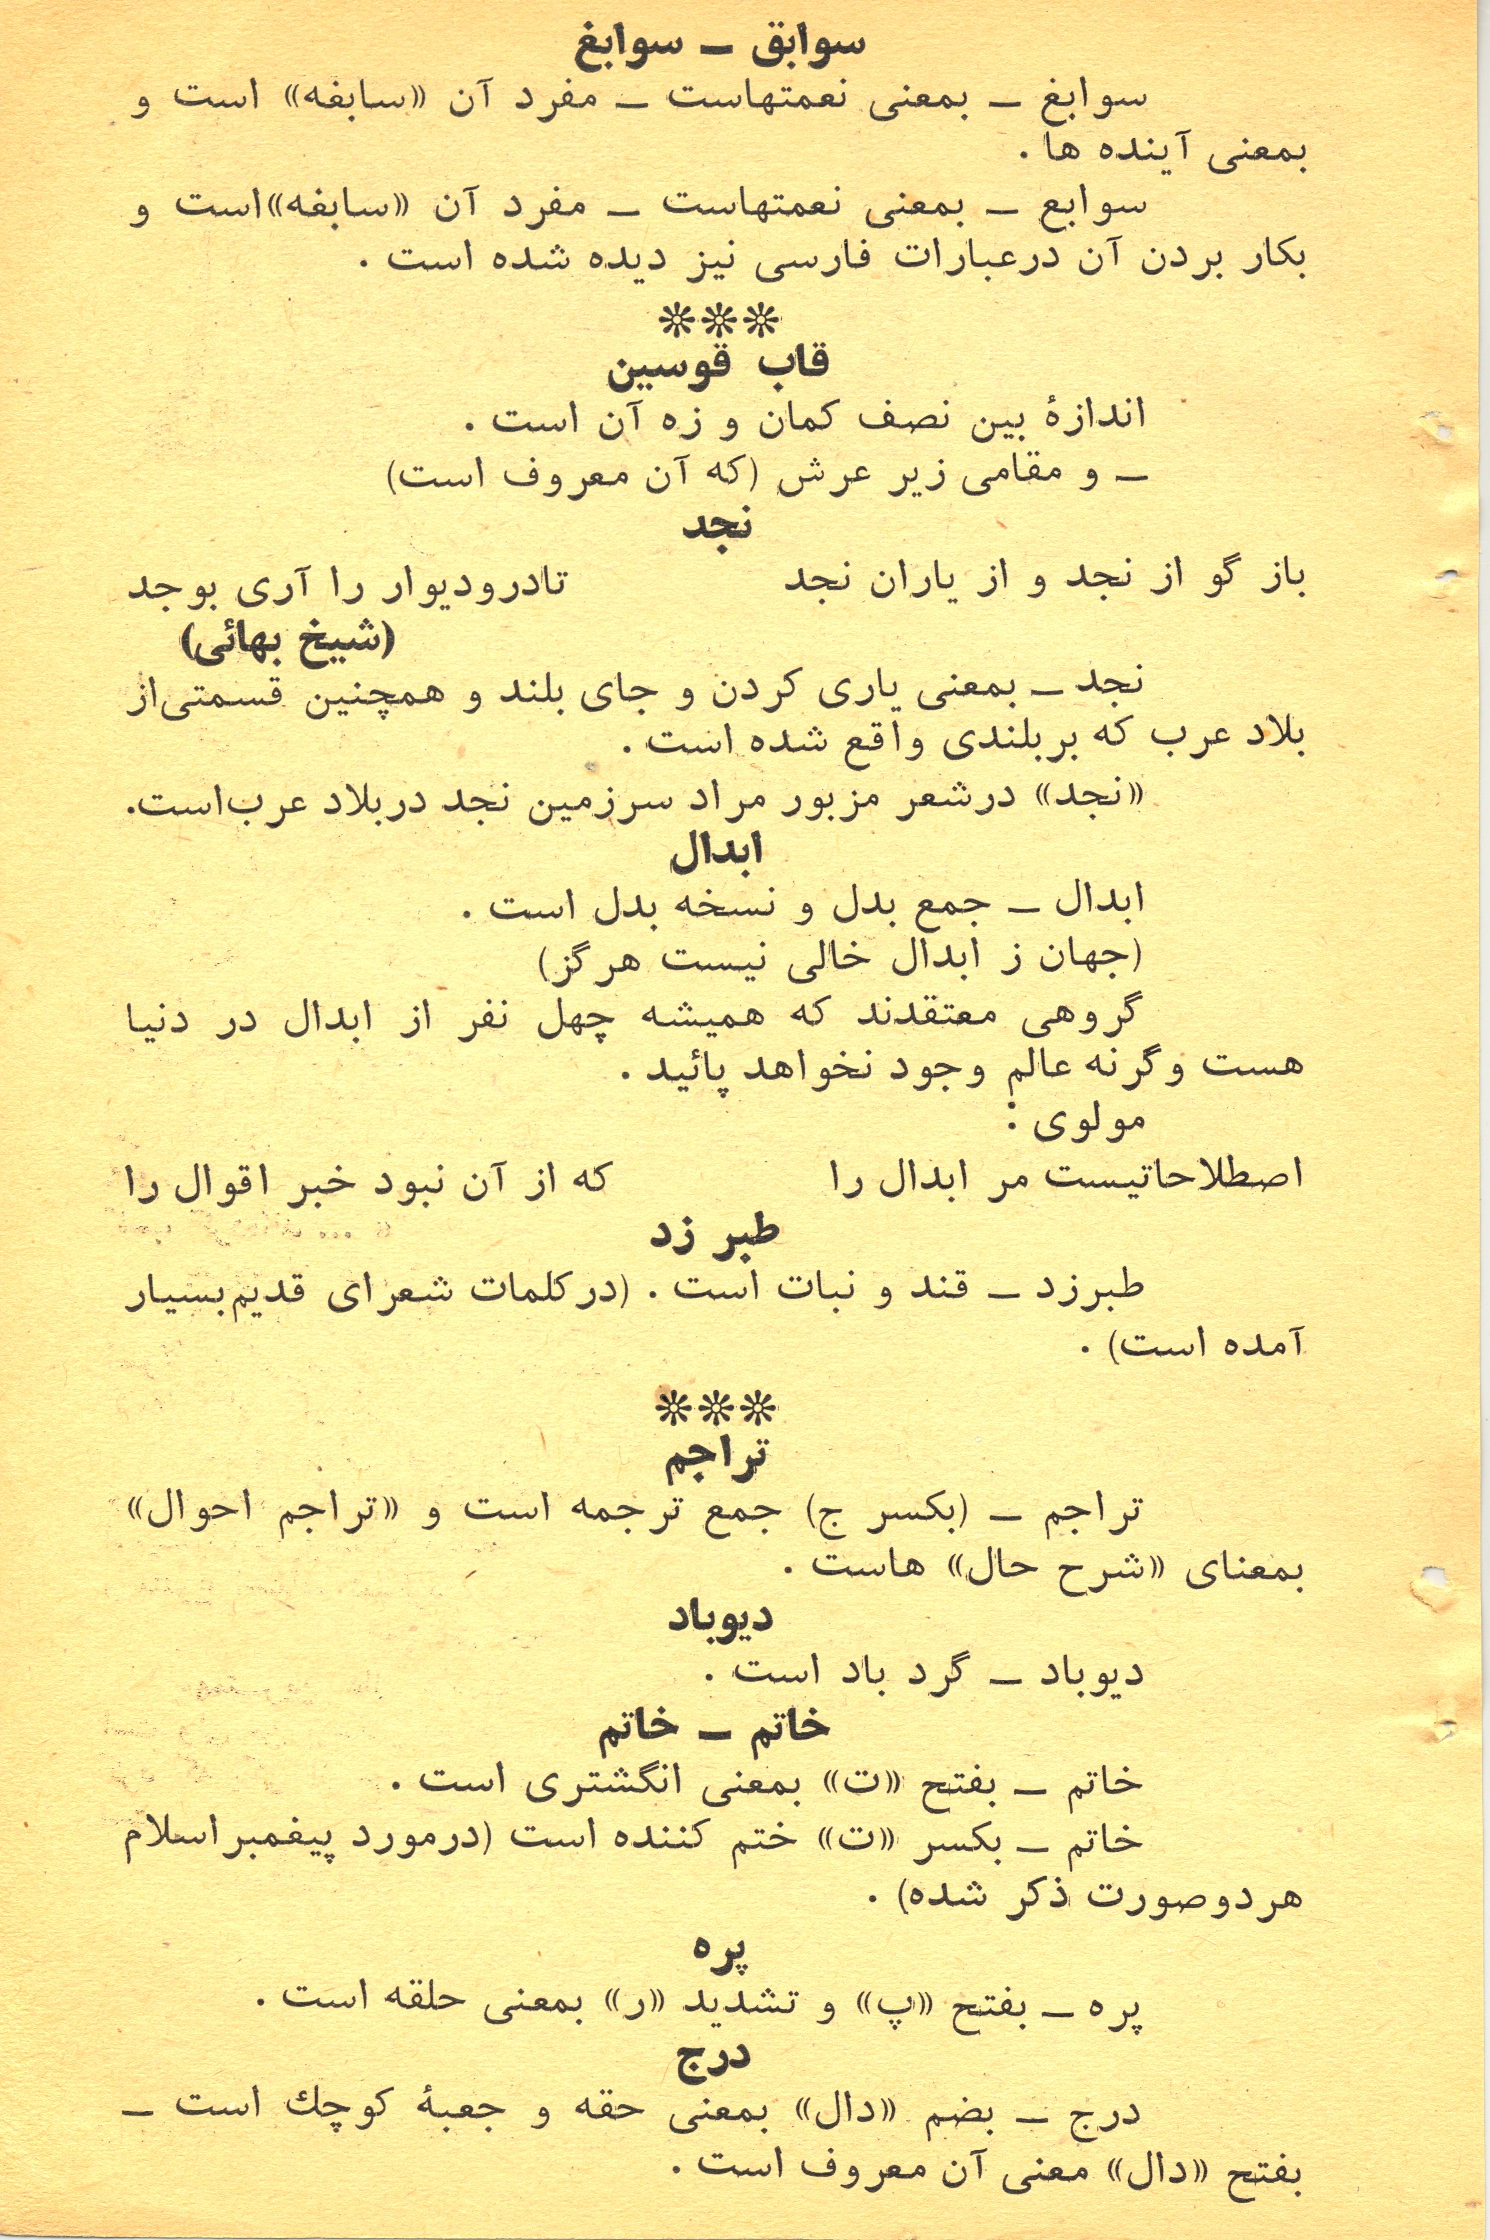 سوابق ــ سوابغ
سوابغ ــ بمعنی نعمتهاست ــ مفرد آن «سابغه» است و
بمعنی آینده ها .
سوابع ــ بمعنی نعمتهاست ــ مفرد آن «سابغه»است و
بکار بردن آن درعبارات فارسی نیز دیده شده است .
***
قاب قوسین
اندازهٔ بین نصف کمان و زه آن است .
ــ و مقامی زیر عرش (که آن معروف است)
نجد
باز گو از نجد و از یاران نجد تادرودیوار را آری بوجد
(شیخ بهائی)
نجد ــ بمعنی یاری کردن و جای بلند و همچنین قسمتی‌از
بلاد عرب که بربلندی واقع شده است .
«نجد» درشعر مزبور مراد سرزمین نجد دربلاد عرب‌است.
ابدال
ابدال ــ جمع بدل و نسخه بدل است .
(جهان ز ابدال خالی نیست هرگز)
گروهی معتقدند که همیشه چهل نفر از ابدال در دنیا
هست وگرنه عالم وجود نخواهد پائید .
مولوی :
اصطلاحاتیست مر ابدال را که از آن نبود خبر اقوال را
طبر زد
طبرزد ــ قند و نبات است . (درکلمات شعرای قدیم‌بسیار
آمده است) .
***
تراجم
تراجم ــ (بکسر ج) جمع ترجمه است و «تراجم احوال»
بمعنای «شرح حال» هاست .
دیوباد
دیوباد ــ گرد باد است .
خاتم ــ خاتم
خاتم ــ بفتح «ت» بمعنی انگشتری است .
خاتم ــ بکسر «ت» ختم کننده است (درمورد پیغمبراسلام
هردوصورت ذکر شده) .
پره
پره ــ بفتح «پ» و تشدید «ر» بمعنی حلقه است .
درج
درج ــ بضم «دال» بمعنی حقه و جعبهٔ کوچك است ــ
بفتح «دال» معنی آن معروف است .